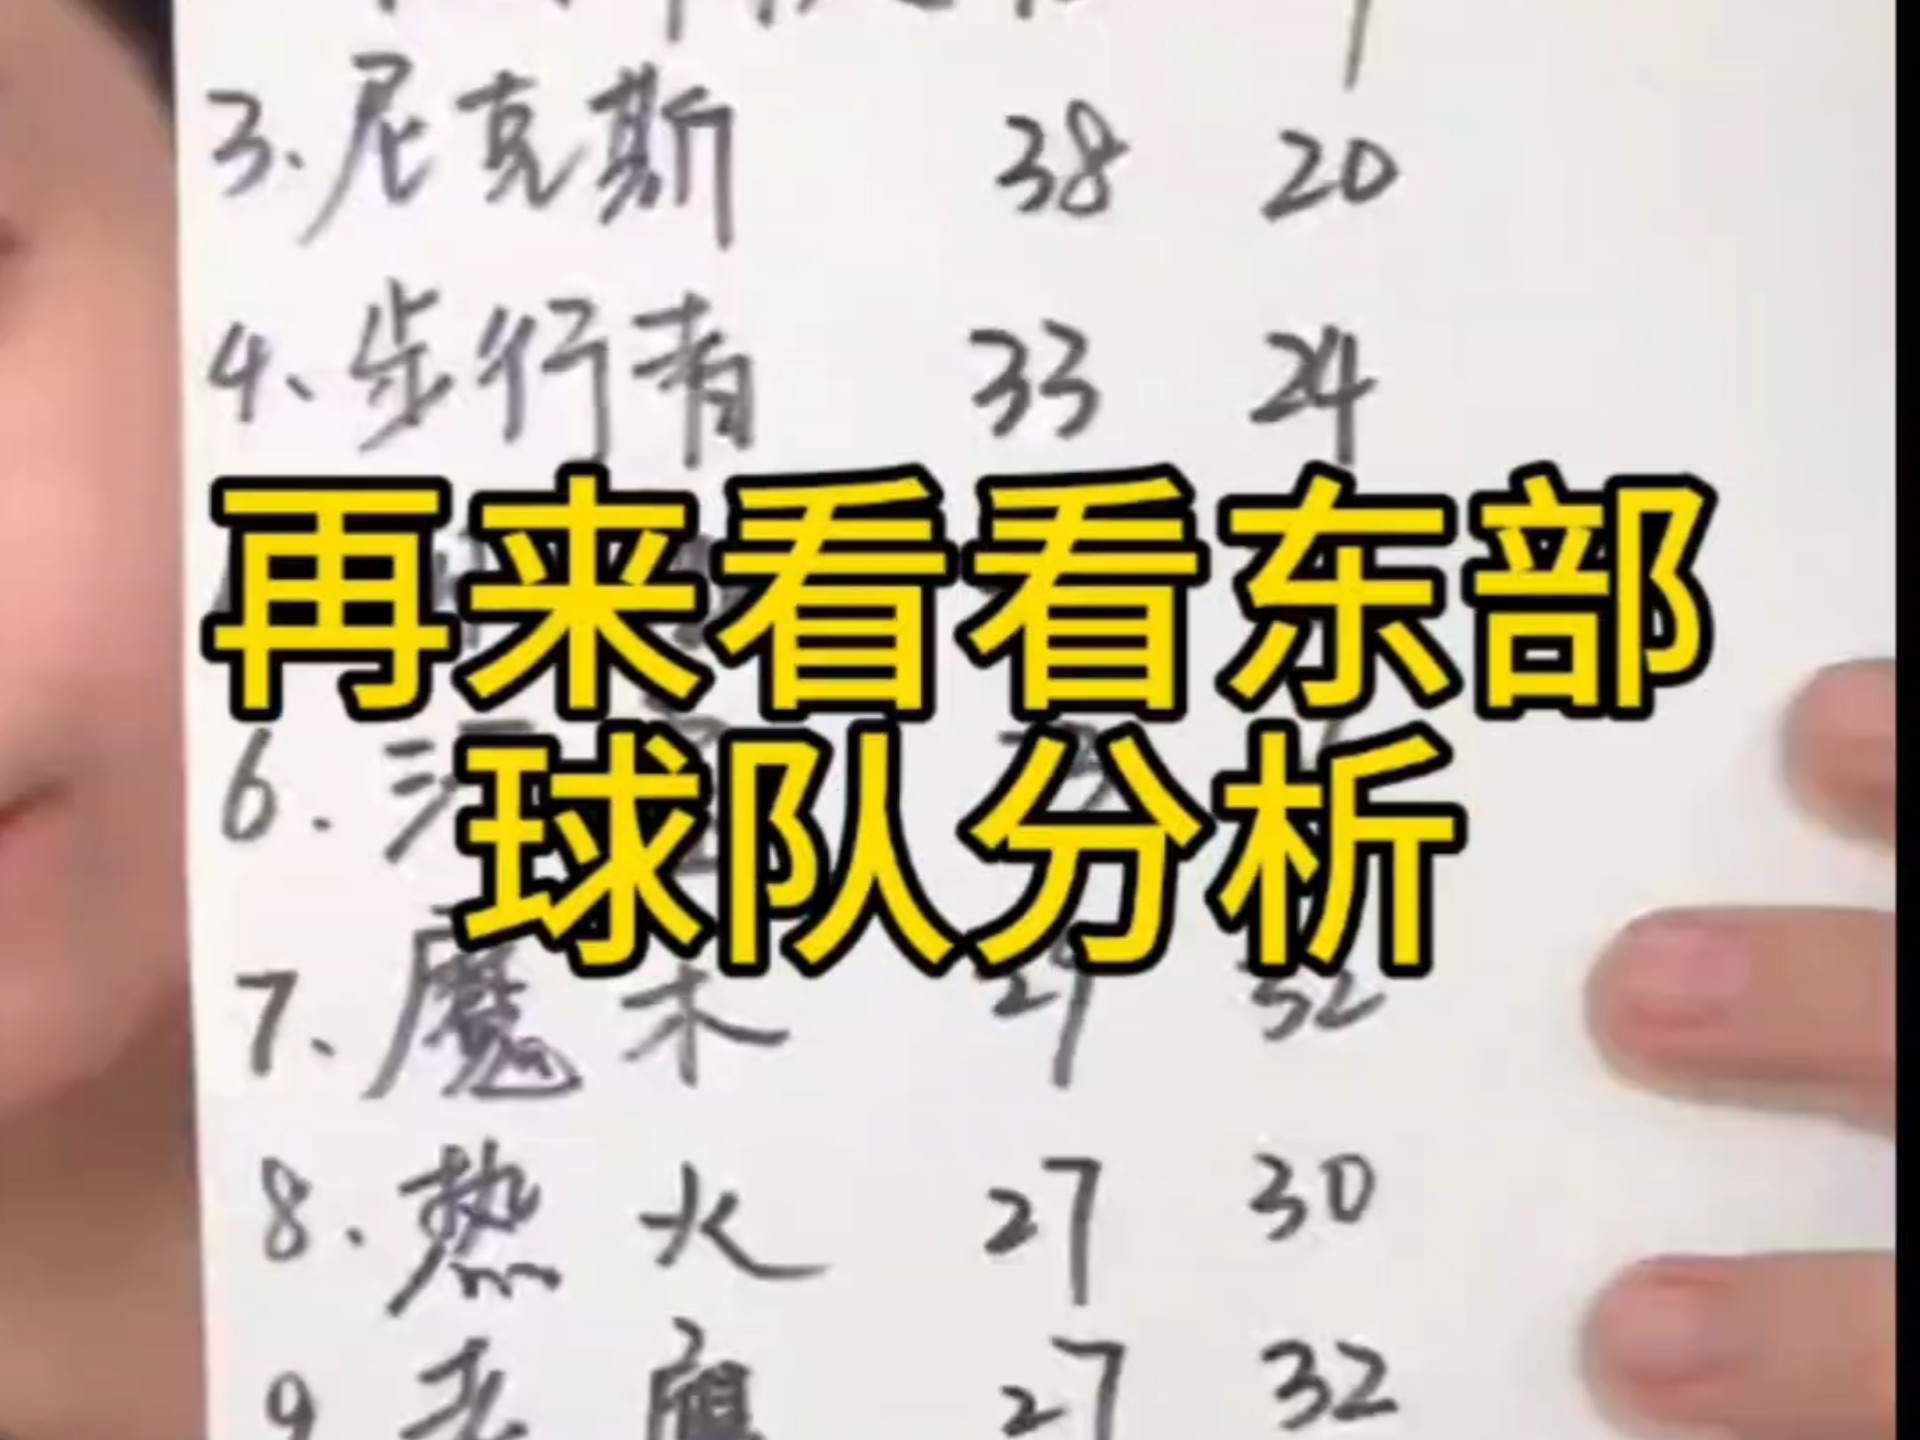 3、尼克斯 38 20
4、步行者 33 24
再来看看东部
球队分析
6.
7、魔术 29 32
8.热火 27 30
9 老鹰 27 32